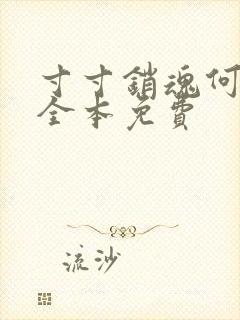 寸寸銷魂何
全本免費
流沙